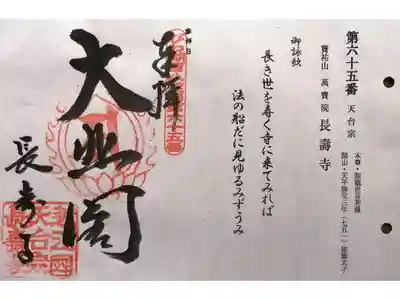 第六十五番 天台宗
本尊・
開山・天平勝宝三年(七五一)聖徳太子
寶祐山 萬寶院 長壽寺
御詠歌
長き世を尋く寺に来てみれば
法の船だに見ゆるみずうみ
奉拝
大悲閣
長寿寺